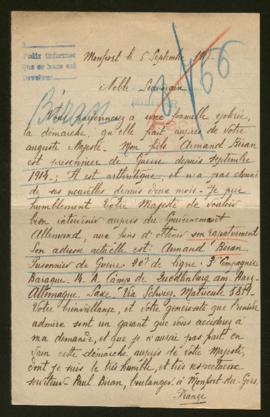 Pide informes
Que se haga est
Devolver
Monfort le 5 Septembre 191
8/166
Noble Souverain
Biran
Vous pardonnerez a une famille éplorée,
la démarche, qu'elle fait auprès de votre
auguste Majesté. Mon fils Armand Biran
est prisonnier de Guerre depuis Septembre
1914; Il est arthritique, et n'a pas donné
de ses nouvelles depuis deux mois. Je prie
humblement Votre Majesté de vouloir
bien intervenir auprès du Gouvernement
Allemand, aux fins d'obtenir son rapatriement
Son adresse actuelle est: Armand Biran
Prisonnier de Guerre 20e de ligne 3e Compagnie
Baraque 4. A, Camp de Quedlinburg am Harz
Allemagne, Saxe, Via Schweiz, Matricule
Votre bienveillance, et votre générosité que l'univers
admire sont un garant que vous accéderez à
ma demande, et que je n'aurai pas fait en
vain cette démarche auprès de votre Majesté,
dont je suis le très humble, et très respectueux
serviteur. Paul Biran, boulanger à Monfort-du-Gers
France